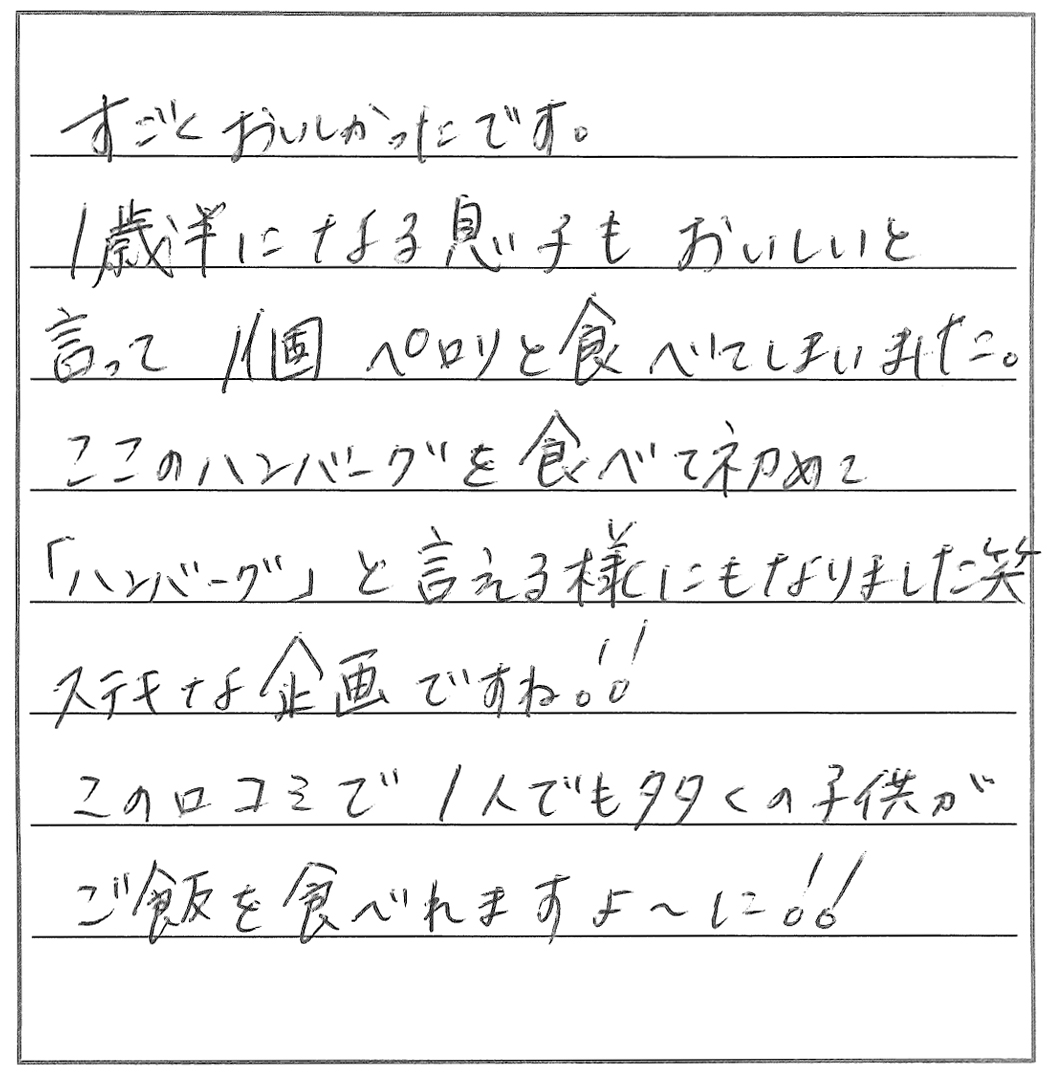 すごくおいしかったです。
1歳半になる息子も おいしいと
言って 1個 ペロリと食べてしまいました。
ここのハンバーグを食べて初めて
「ハンバーグ」と言える様にもなりました笑
ステキな企画ですね!!
この口コミで1人でも多くの子供が
ご飯を食べれますよ〜に!!